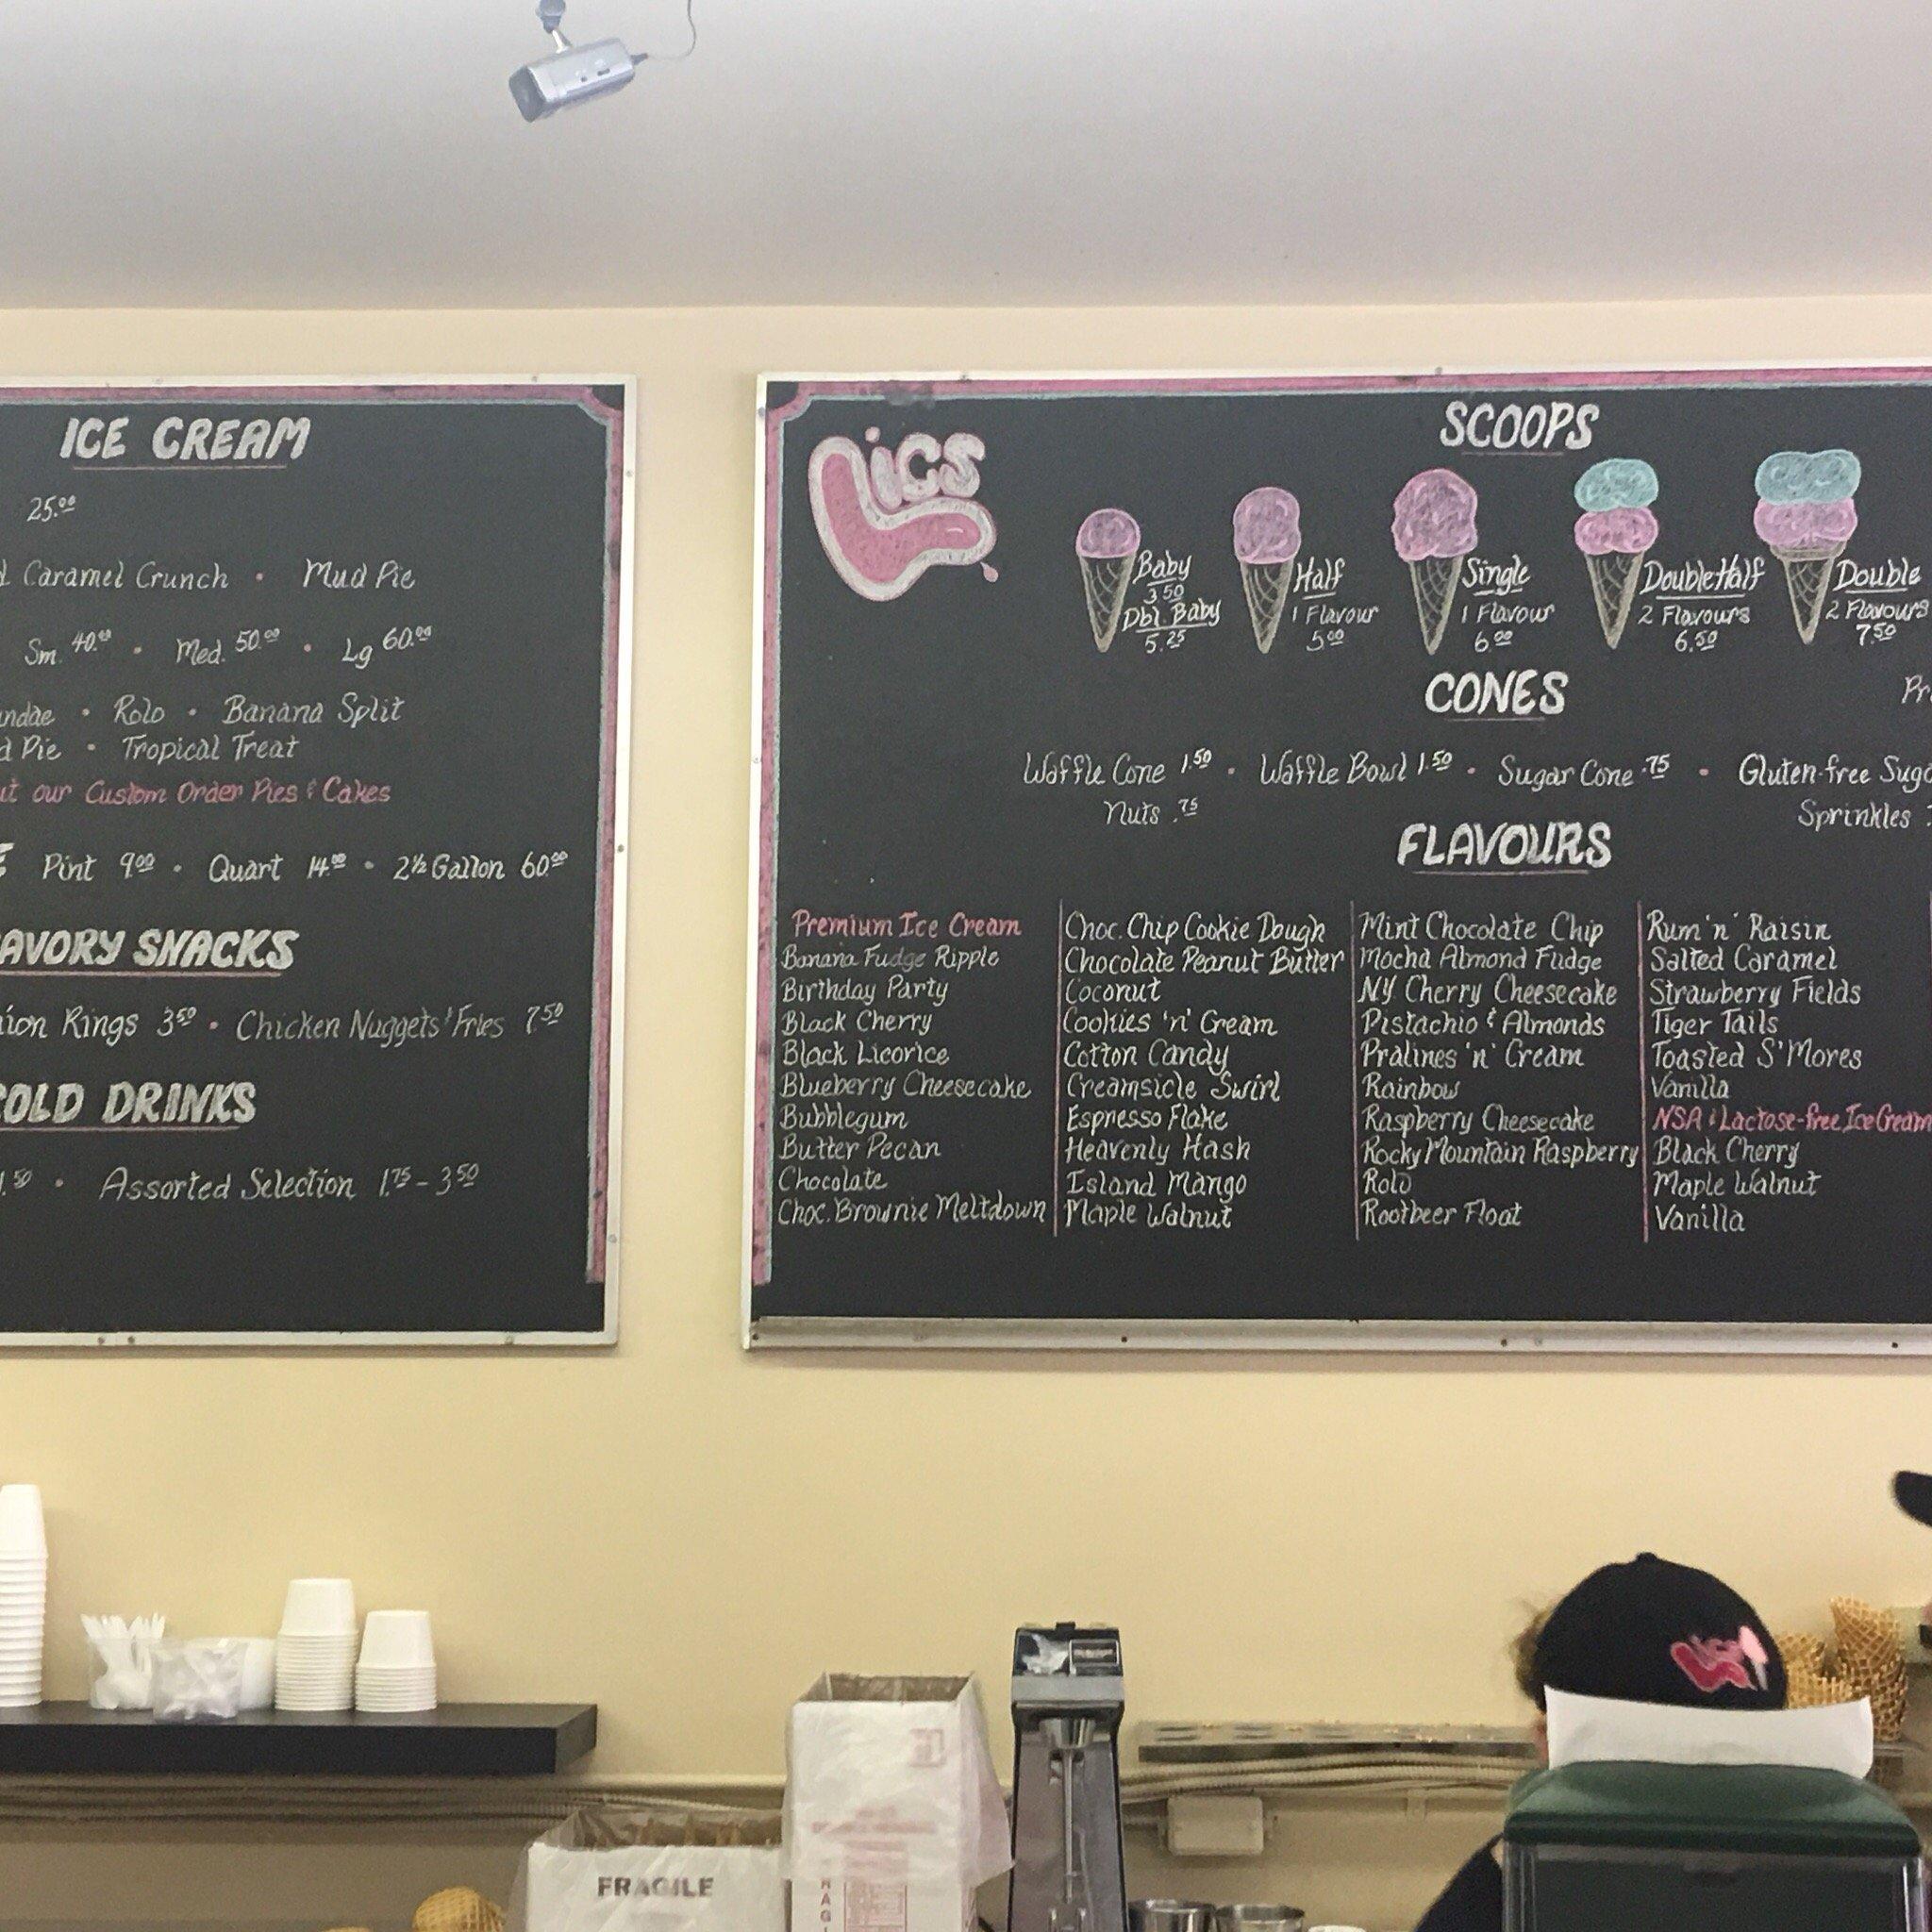 ICE CREAM
25.00
Caramel Crunch • Mud Pie
Sm. 40.00 • Med. 50.00 • Lg. 60.00
• Rolo • Banana Split
Pie • Tropical Treat
our Custom Order Pies & Cakes
Pint 9.00 • Quart 14.00 • 2½ Gallon 60.00
AVORY SNACKS
ion Rings 3.50 • Chicken Nuggets & Fries 7.50
OLD DRINKS
.50 • Assorted Selection 1.75 - 3.50
Lics
SCOOPS
Baby
3.50
Dbl. Baby
5.25
Half
1 Flavour
5.00
Single
1 Flavour
6.00
Double Half
2 Flavours
6.50
Double
2 Flavours
7.50
CONES
Pr
Waffle Cone 1.50 • Waffle Bowl 1.50 • Sugar Cone .75 • Gluten-free Suga
Nuts .75
Sprinkles
FLAVOURS
Premium Ice Cream
Banana Fudge Ripple
Birthday Party
Black Cherry
Black Licorice
Blueberry Cheesecake
Bubblegum
Butter Pecan
Chocolate
Choc. Brownie Meltdown
Choc. Chip Cookie Dough
Chocolate Peanut Butter
Coconut
Cookies 'n' Cream
Cotton Candy
Creamsicle Swirl
Espresso Flake
Heavenly Hash
Island Mango
Maple Walnut
Mint Chocolate Chip
Mocha Almond Fudge
NY Cherry Cheesecake
Pistachio & Almonds
Pralines 'n' Cream
Rainbow
Raspberry Cheesecake
Rocky Mountain Raspberry
Rolo
Rootbeer Float
Rum 'n' Raisin
Salted Caramel
Strawberry Fields
Tiger Tails
Toasted S'Mores
Vanilla
NSA & Lactose-free Ice Cream
Black Cherry
Maple Walnut
Vanilla
FRAGILE